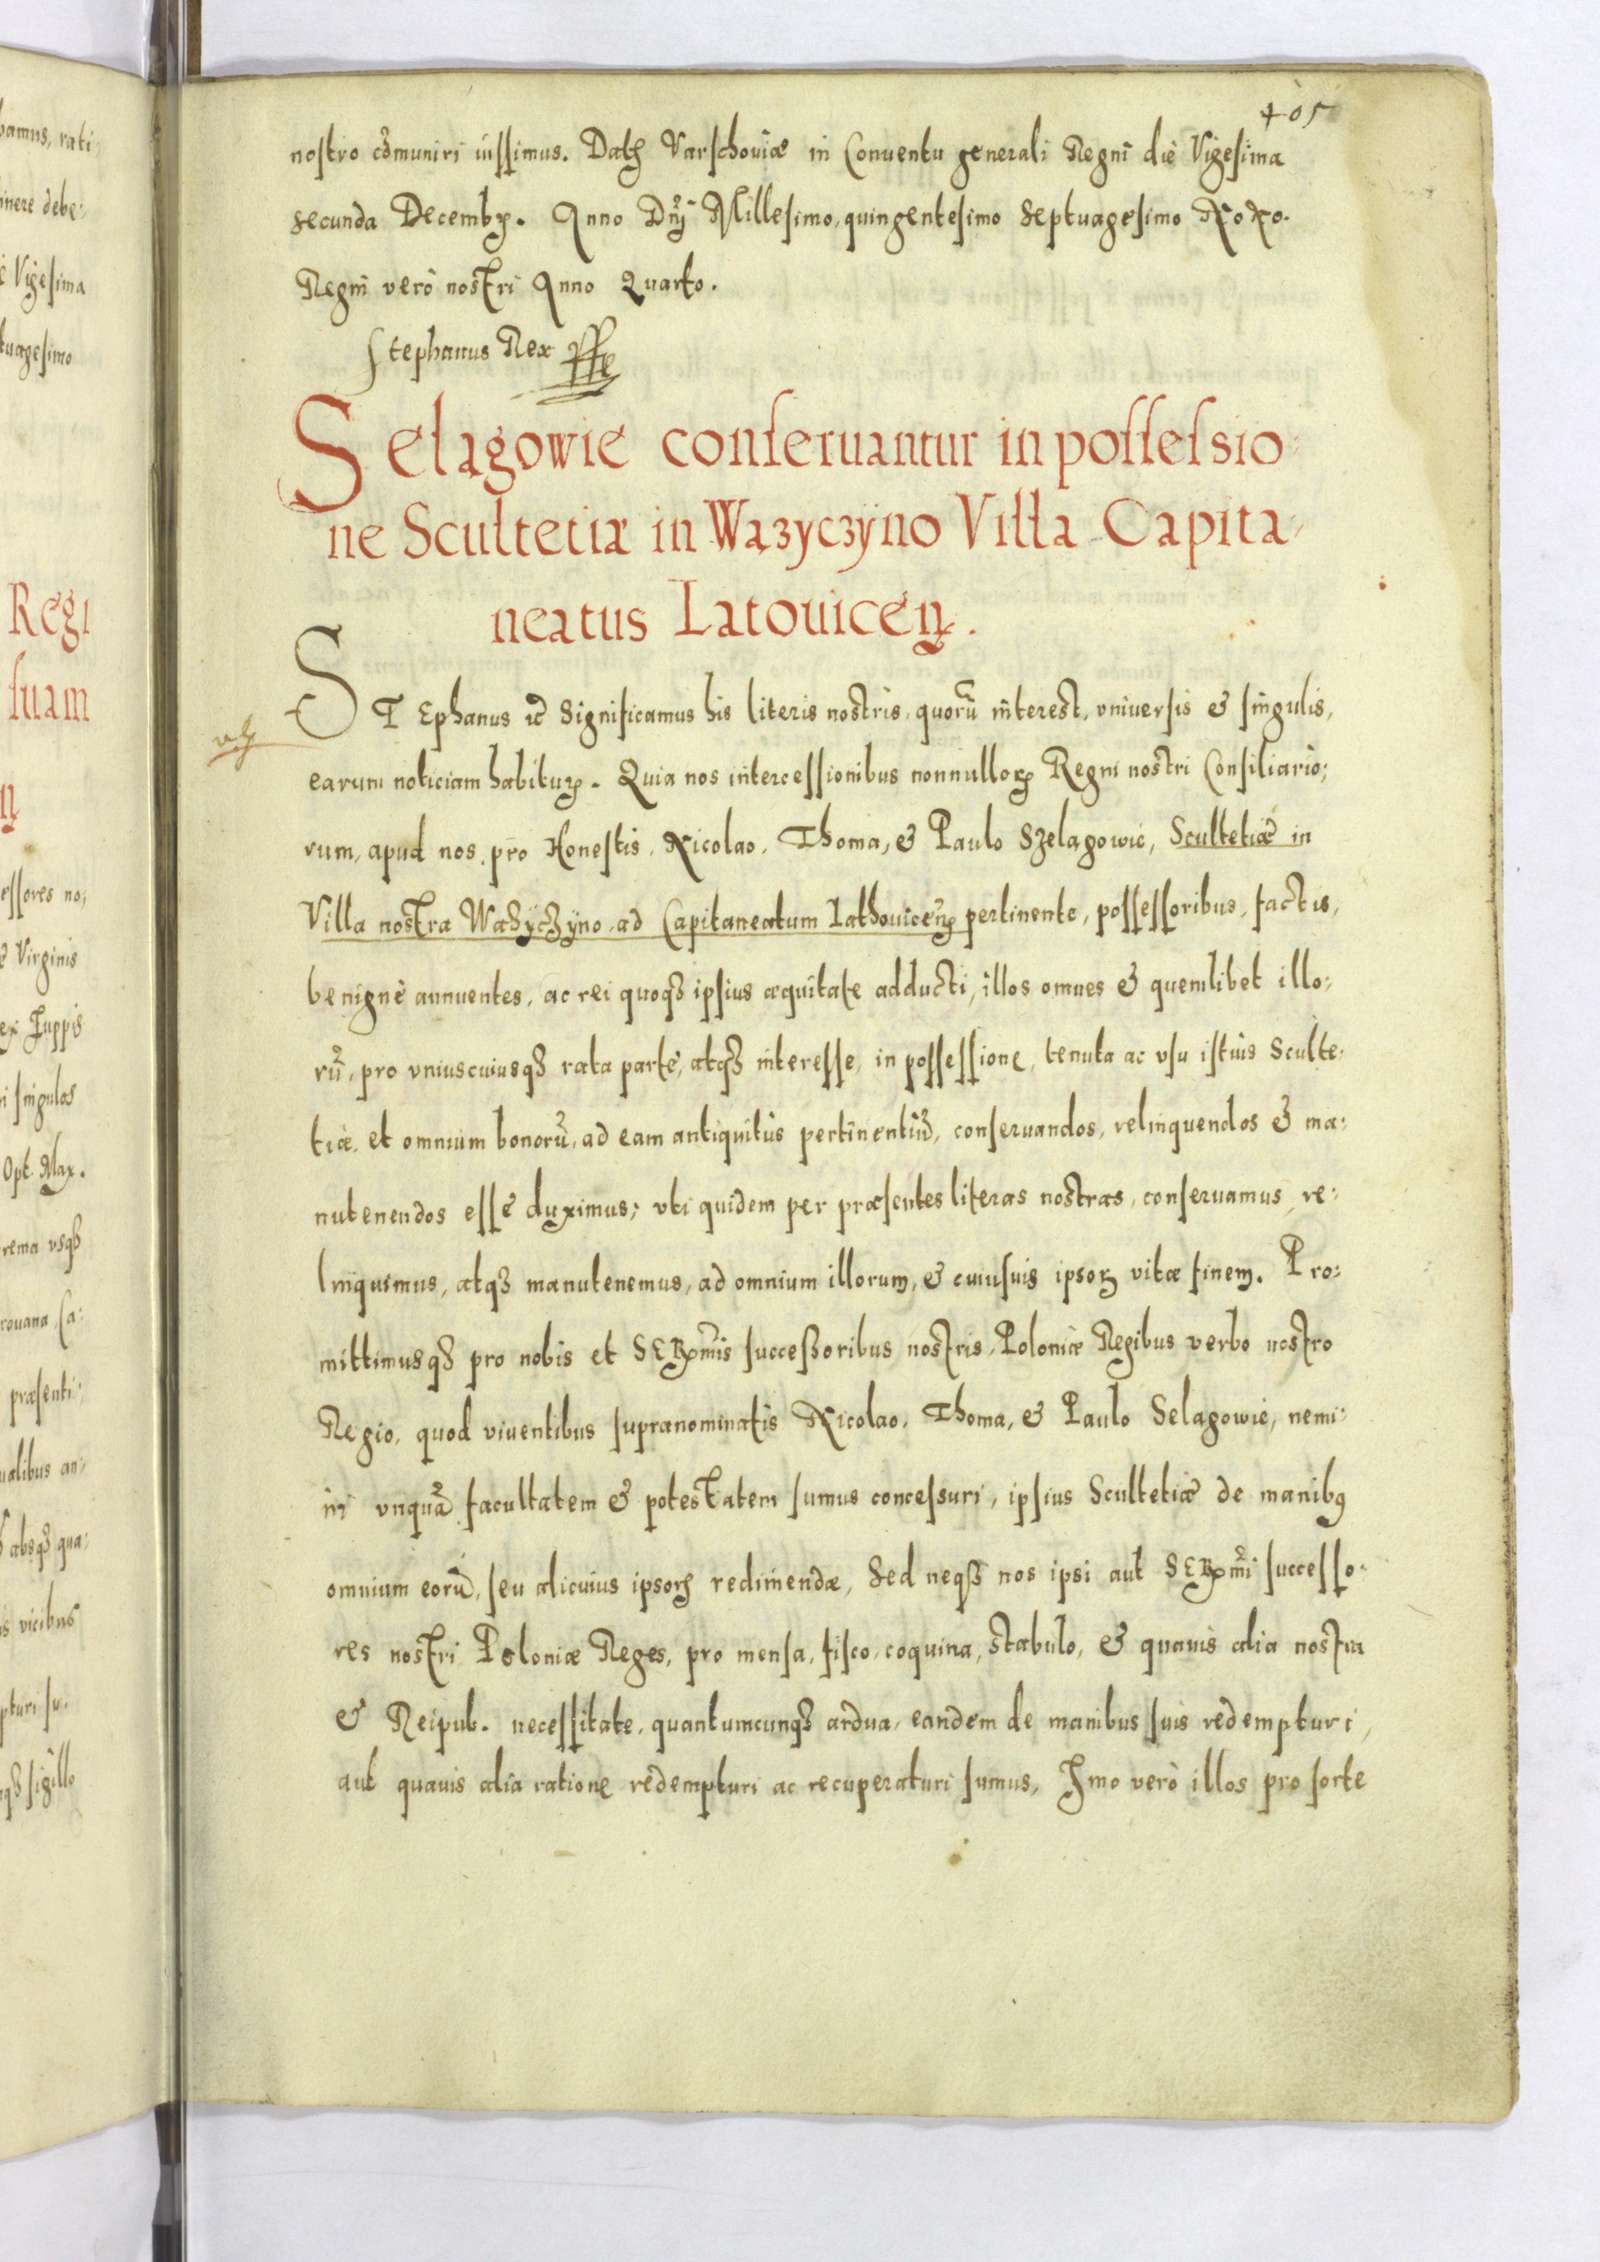 405
nostro cõmuniri iussimus. Datꝭ Varschouiæ in Conuentu generali Regni die Vigesima
secunda Decembꝶ. Anno Dnĩ Millesimo, quingentesimo Septuagesimo Nono.
Regni verò nostri Anno Quarto.
Stephanus Rex
Selagowie conseruantur in possessio-
ne Scultetiæ in Wązyczÿno Villa Capita-
neatus Latouiceñ.
STEphanus etc Significamus his literis nostris, quorũ interest, vniuersis & singulis,
earum noticiam habituꝶ. Quia nos intercessionibus nonnulloꝶ Regni nostri Consiliario-
rum, apud nos, pro Honestis, Nicolao, Thoma, & Paulo Szelagowie, Scultetiæ in
Villa nostra Wązÿczÿno, ad Capitaneatum Lathouiceñ pertinente, possessoribus, factis,
benignè annuentes, ac rei quoqꝫ ipsius æquitate adducti, illos omnes & quemlibet illo-
rũ, pro vniuscuiusqꝫ rata parte, atqꝫ interesse, in possessione, tenuta ac vsu istius Sculte-
tiæ, et omnium bonorũ, ad eam antiquitùs pertinentiũ, conseruandos, relinquendos & ma-
nutenendos esse duximus; vti quidem per præsentes literas nostras, conseruamus, re-
linquimus, atqꝫ manutenemus, ad omnium illorum, & cuiusuis ipsoꝶ vitæ finem. Pro-
mittimusqꝫ pro nobis et SERmis successoribus nostris, Poloniæ Regibus verbo nostro
Regio, quod viuentibus supranominatis Nicolao, Thoma, & Paulo Selagowie, nemi-
ni vnquã facultatem & potestatem sumus concessuri, ipsius Scultetiæ de manibꝰ
omnium eorũ, seu alicuius ipsoꝶ redimendæ, Sed neqꝫ nos ipsi aut SERmi successo-
res nostri Poloniæ Reges, pro mensa, fisco, coquina, stabulo, & quauis alia nostra
& Reipub. necessitate, quantumcunqꝫ ardua, eandem de manibus suis redempturi,
aut quauis alia ratione redempturi ac recuperaturi sumus, Imo verò illos pro forte